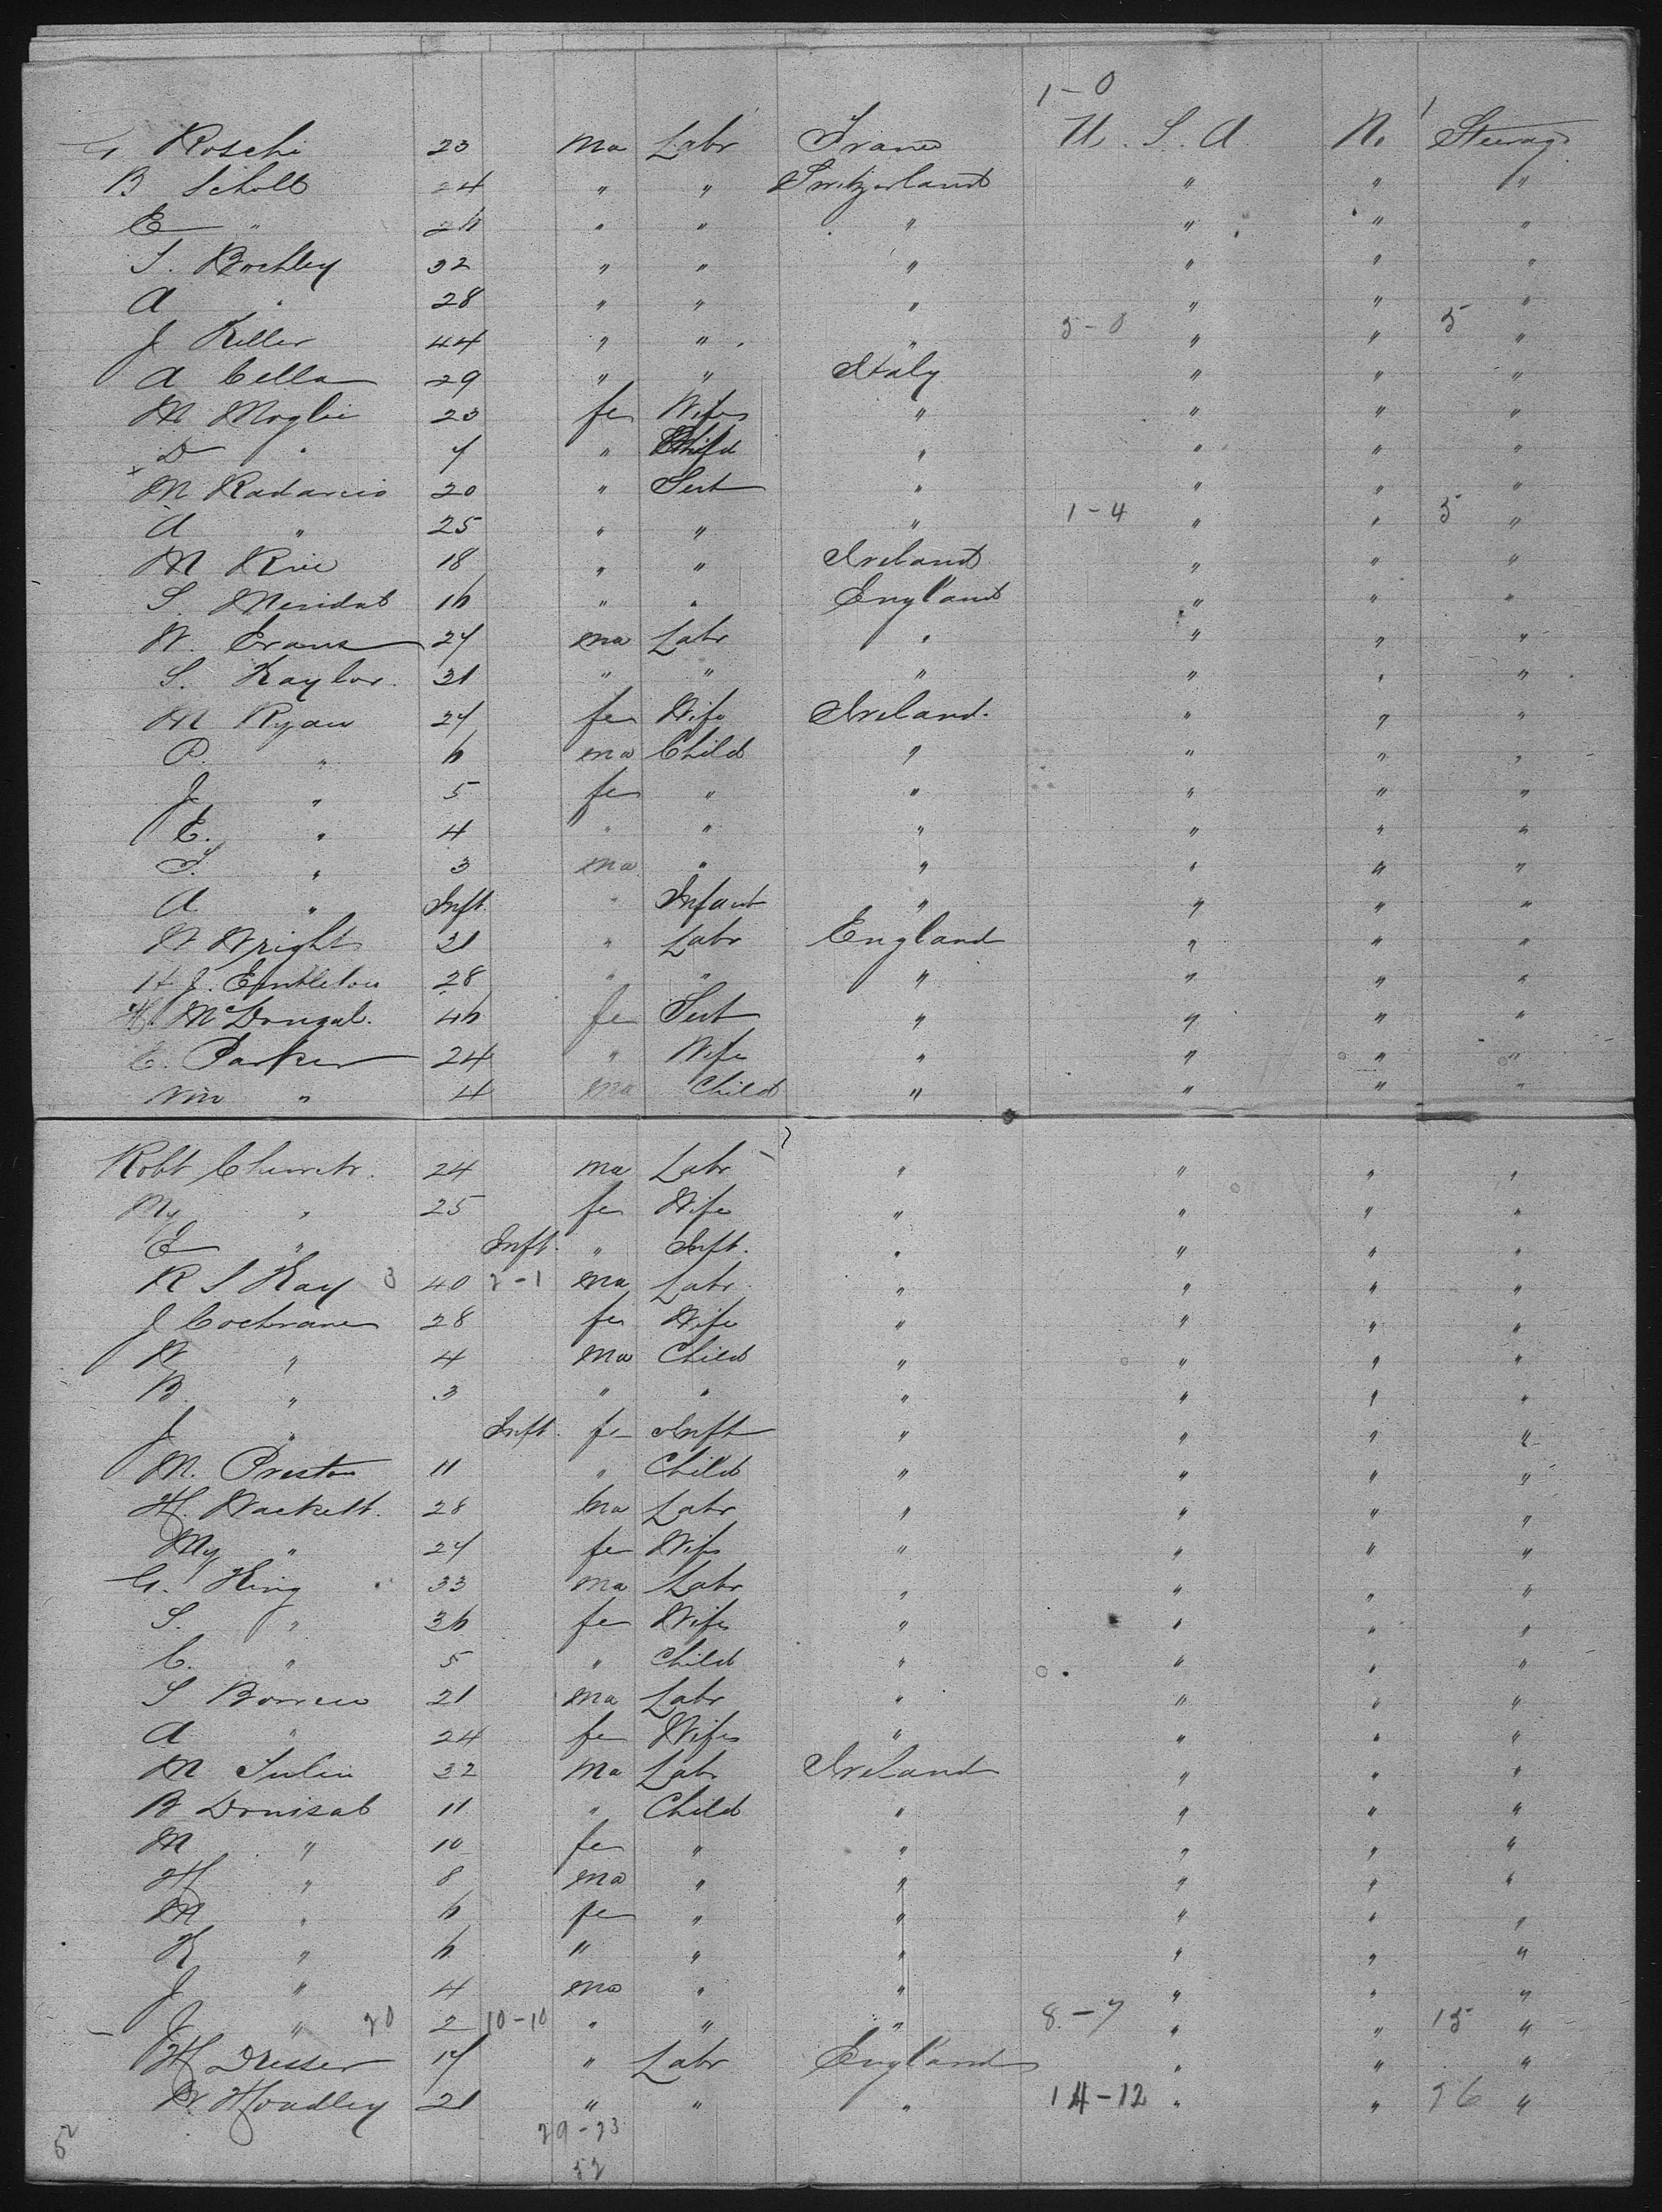 1-0
G Roschi 23 Ma Labr France U. S. A No 1 Steerage
B Scholl 24 " " Switzerland " " "
E " 26 " " " " " "
S. Bochley 32 " " " " " "
A " 28 " " " " " "
J Keller 44 " " " 5-0 " " 5 "
A Cella 29 " " Italy " " "
M Moglie 23 fe Wife " " " "
D " 7 " Child " " " "
M Radancio 20 " Sert " " " "
A " 25 " " " 1-4 " " 5 "
M Rice 18 " " Ireland " " "
S. Meridat 16 " " England " " "
W. Evans 27 ma Labr " " " "
S. Kaylor 31 " " " " " "
M Ryan 27 fe Wife Ireland. " " "
P. " 6 ma Child " " " "
J " 5 fe " " " " "
E. " 4 " " " " " "
T. " 3 ma " " " " "
A " Inft. " Infant " " " "
W Wright 31 " Labr England " " "
H J. Entleton 28 " " " " " "
H. McDougal. 46 fe Sert " " " "
C. Parker 24 " Wife " " " "
Wm " 4 ma Child " " " "
Robt Church. 24 ma Labr " " " "
My " 25 fe Wife " " " "
E " Inft. " Inft. " " " "
R S Kay 3 40 2-1 ma Labr " " " "
J Cochrane 28 fe Wife " " " "
W " 4 Ma Child " " " "
B. " 3 " " " " " "
J " Inft. fe Inft " " " "
M. Preston 11 " Child " " " "
H. Hackett. 28 ma Labr " " " "
My " 27 fe Wife " " " "
G. King 33 ma Labr " " " "
S. " 36 fe Wife " " " "
C. " 5 " Child " " " "
S Bowen 21 ma Labr " " " "
A " 24 fe Wife " " " "
M Julin 32 Ma Labr Ireland " " "
B Donisab 11 " Child " " " "
M " 10 fe " " " " "
H " 8 ma " " " " "
M " 6 fe " " " " "
K " 6 " " " " " "
J " 4 ma " " " " "
J " 20 2 10-10 " " " 8-7 " " 15 "
H Dresser 17 " Labr England " " "
W. Hoadley 21 " " " 14-12 " " 26 "
29-23
52
52